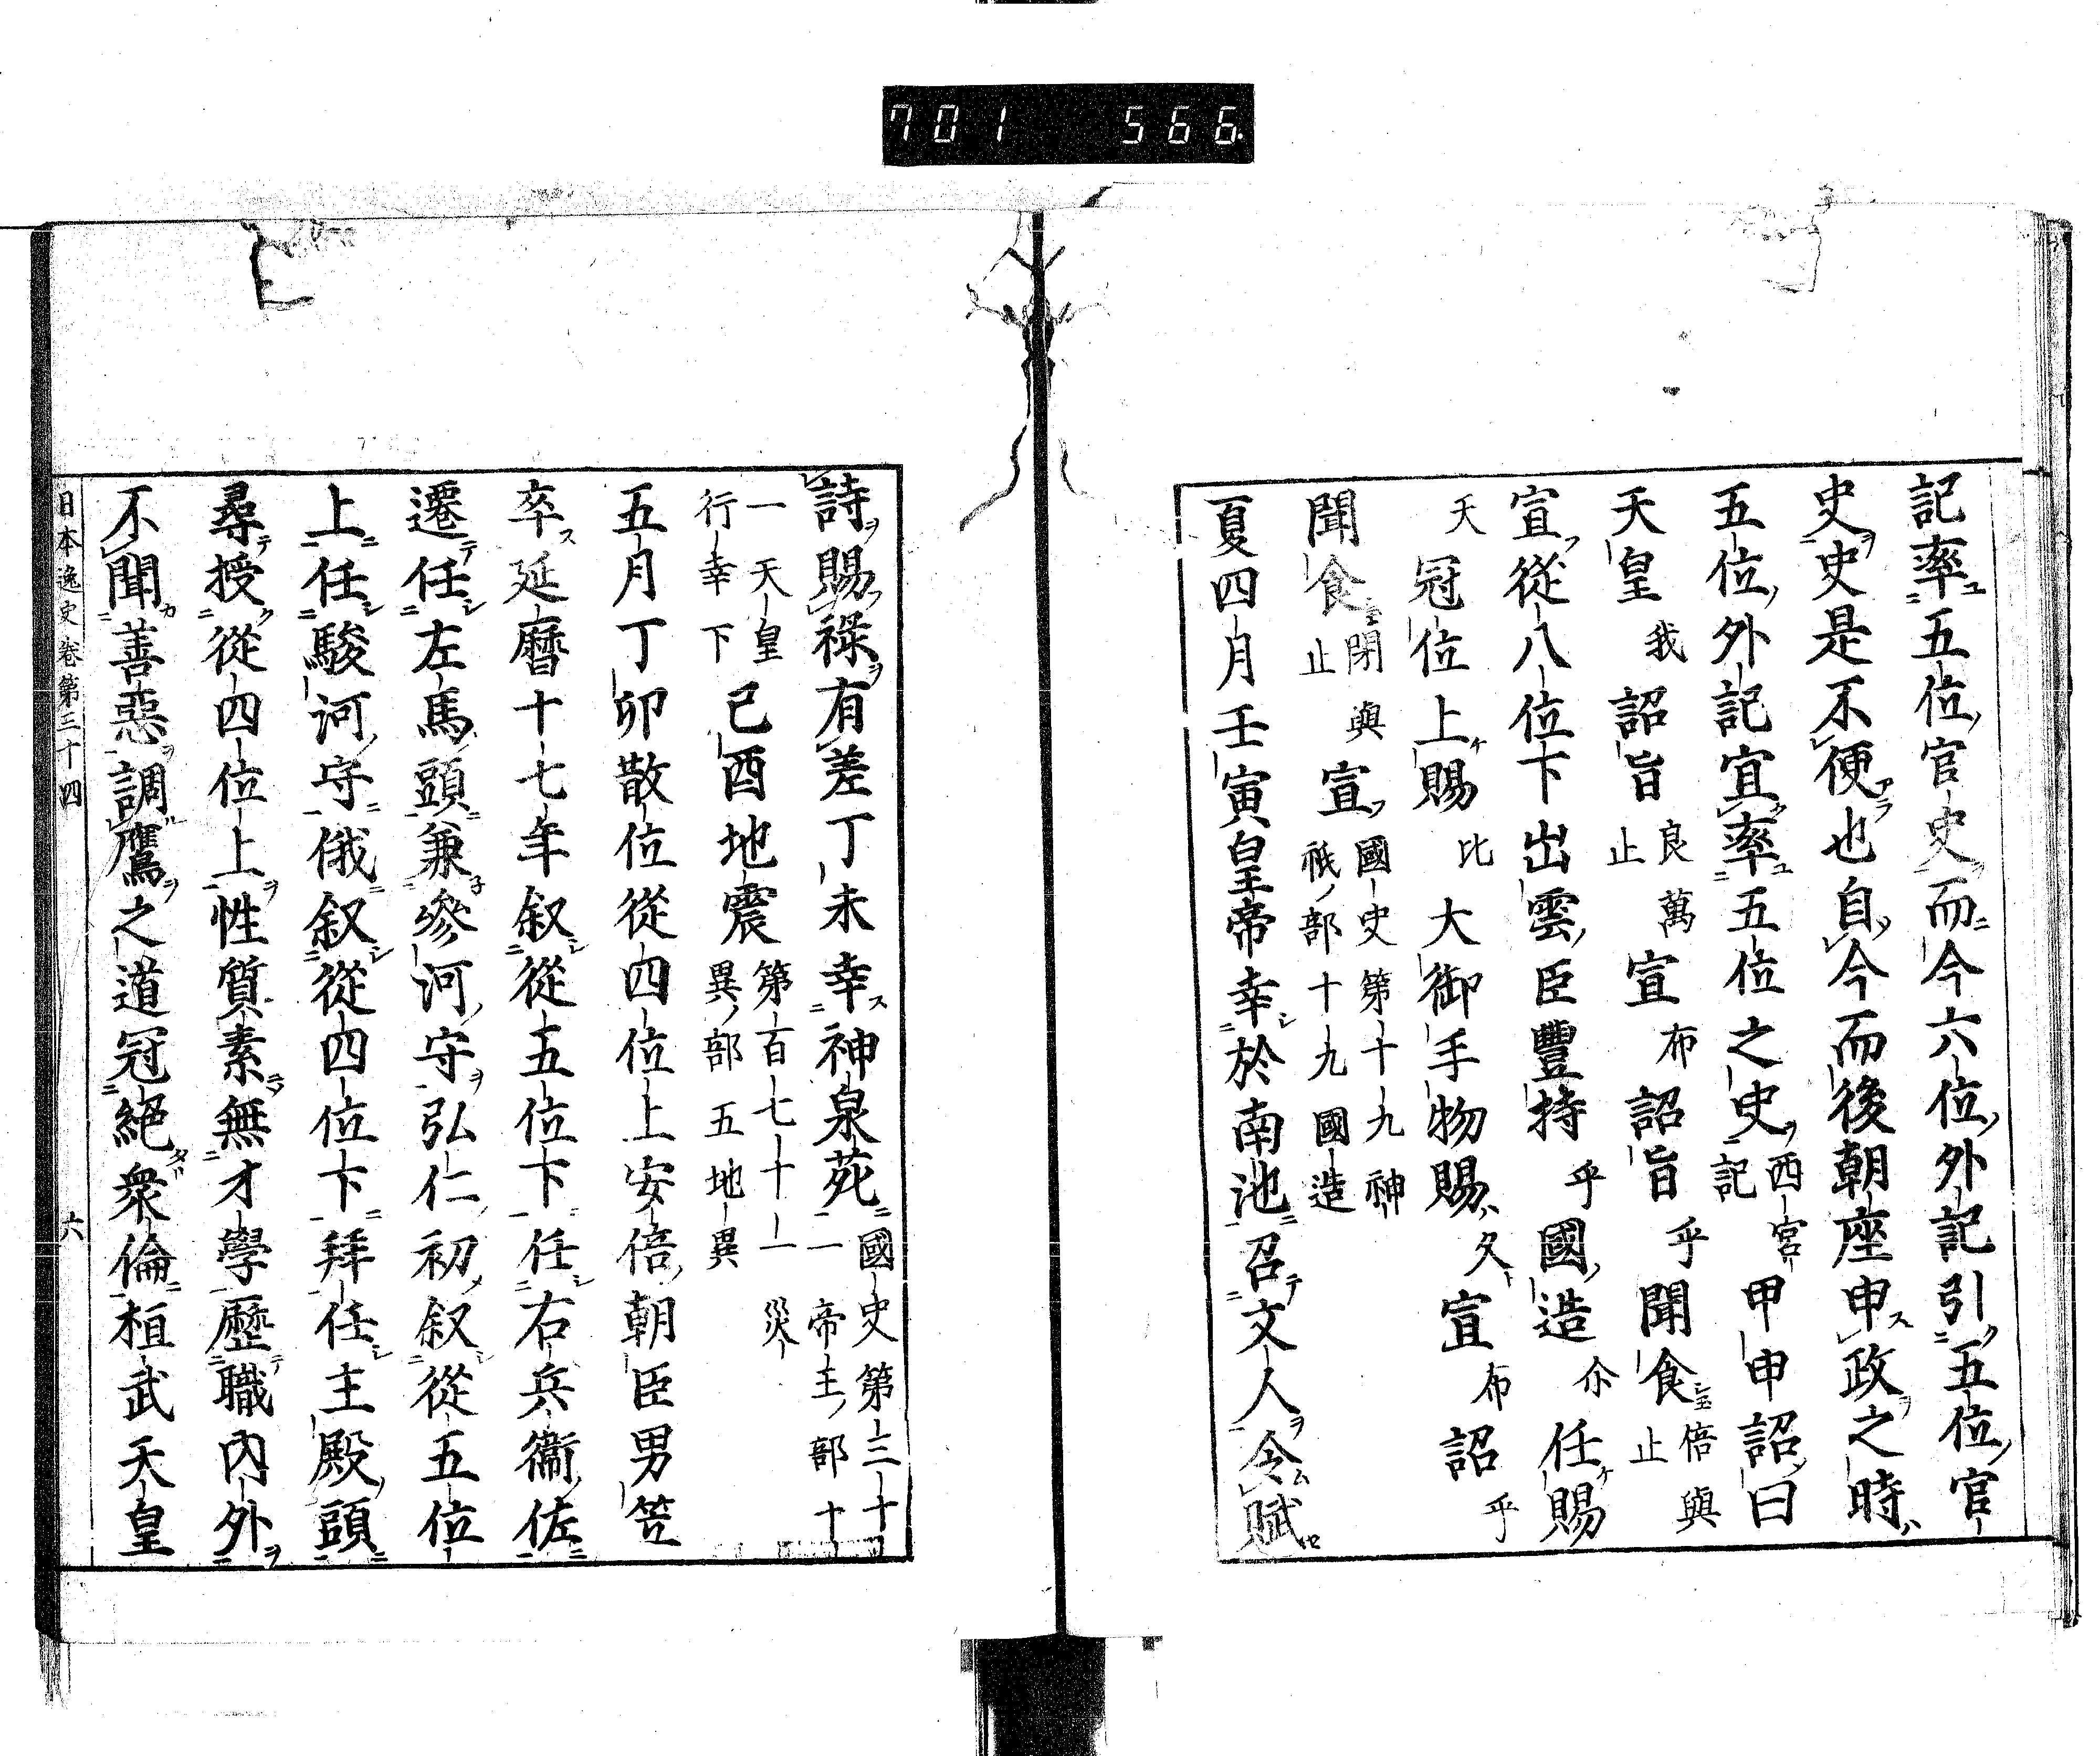 701 566
記率五位官史而今六位外記引五位官
史史是不便也自今而後朝座申政之時
五位外記宜率五位之史西宮記甲申詔曰
天皇我詔旨良萬止宣布詔旨乎聞食倍與止
宣從八位下出雲臣豐持乎國造尒任賜
天冠位上賜比大御手物賜久宣布詔乎
聞食閇與止宣國史第十九神祇部十九國造
夏四月壬寅皇帝幸於南池召文人令賦
詩賜祿有差丁未幸神泉苑國史第三十一帝王部十
一天皇行幸下己酉地震第百七十一災異部五地異
五月丁卯散位從四位上安倍朝臣男笠
卒延曆十七年叙從五位下任右兵衞佐
遷任左馬頭兼參河守弘仁初叙從五位
上任駿河守俄叙從四位下拜任主殿頭
尋授從四位上性質素無才學歷職內外
不聞善惡調鷹之道冠絕衆倫桓武天皇
日本逸史卷第三十四 六